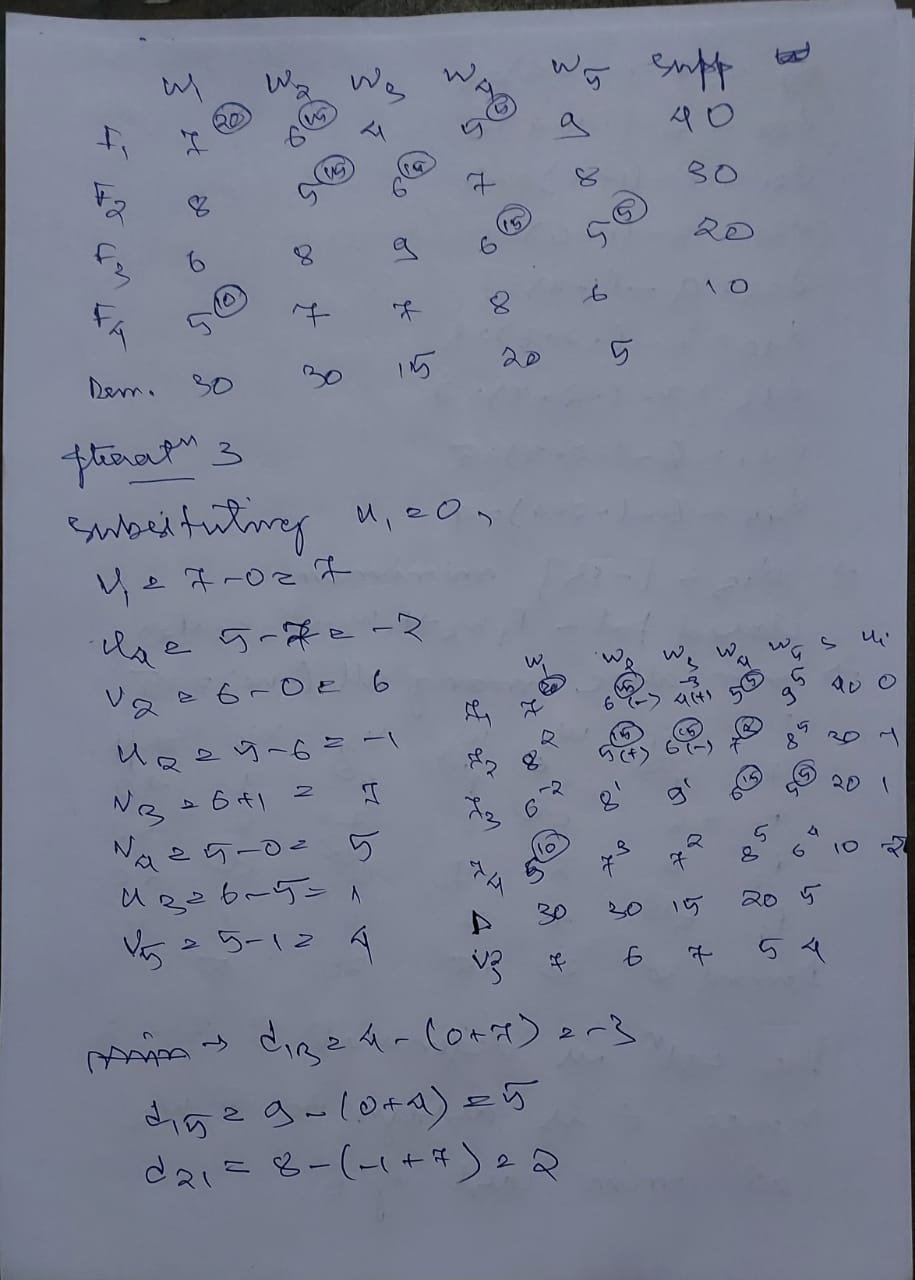 W1 W2 W3 W4 W5 Supp
F1 7 (20) 6 (15) 4 5 (5) 9 40
F2 8 5 (15) 6 (15) 7 8 30
F3 6 8 9 6 (15) 5 (5) 20
F4 5 (10) 7 7 8 6 10
Dem. 30 30 15 20 5
Iteratn 3
Subsituting u1 = 0,
V1 = 7-0 = 7
u4 = 5-7 = -2
V2 = 6-0 = 6
u2 = 5-6 = -1
V3 = 6+1 = 7
V4 = 5-0 = 5
u3 = 6-5 = 1
V5 = 5-1 = 4
W1 W2 W3 W4 W5 S ui
F1 7 (20) 6 (15) (-) 4 -3 (+) 5 (5) 9 5 40 0
F2 8 2 5 (15) (+) 6 (15) (-) 7 8 5 30 -1
F3 6 -2 8 1 9 1 6 (15) 5 (5) 20 1
F4 5 (10) 7 3 7 2 8 5 6 4 10 -2
D 30 30 15 20 5
7 6 7 5 4
→ d13 = 4-(0+7) = -3
d15 = 9-(0+4) = 5
d21 = 8-(-1+7) = 2